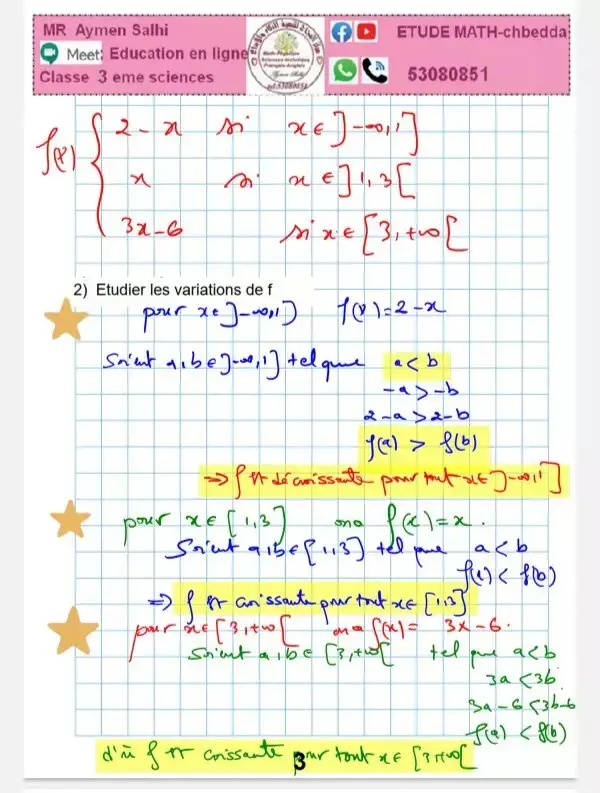 MR Aymen Salhi
Meet: Education en ligne
Classe 3 eme sciences
ETUDE MATH-chbedda
53080851
f(x) { 2 - x si x ∈ ]-∞, 1]
x si x ∈ ]1, 3[
3x - 6 si x ∈ [3, +∞[
2) Etudier les variations de f
pour x ∈ ]-∞, 1] f(x) = 2 - x
Soient a, b ∈ ]-∞, 1] tel que a < b
-a > -b
2 - a > 2 - b
f(a) > f(b)
=> f est décroissante pour tout x ∈ ]-∞, 1]
pour x ∈ [1, 3] on a f(x) = x.
Soient a, b ∈ [1, 3] tel que a < b
f(a) < f(b)
=> f est croissante pour tout x ∈ [1, 3]
pour x ∈ [3, +∞[ on a f(x) = 3x - 6.
Soient a, b ∈ [3, +∞[ tel que a < b
3a < 3b
3a - 6 < 3b - 6
f(a) < f(b)
d'où f est croissante pour tout x ∈ [3, +∞[
3